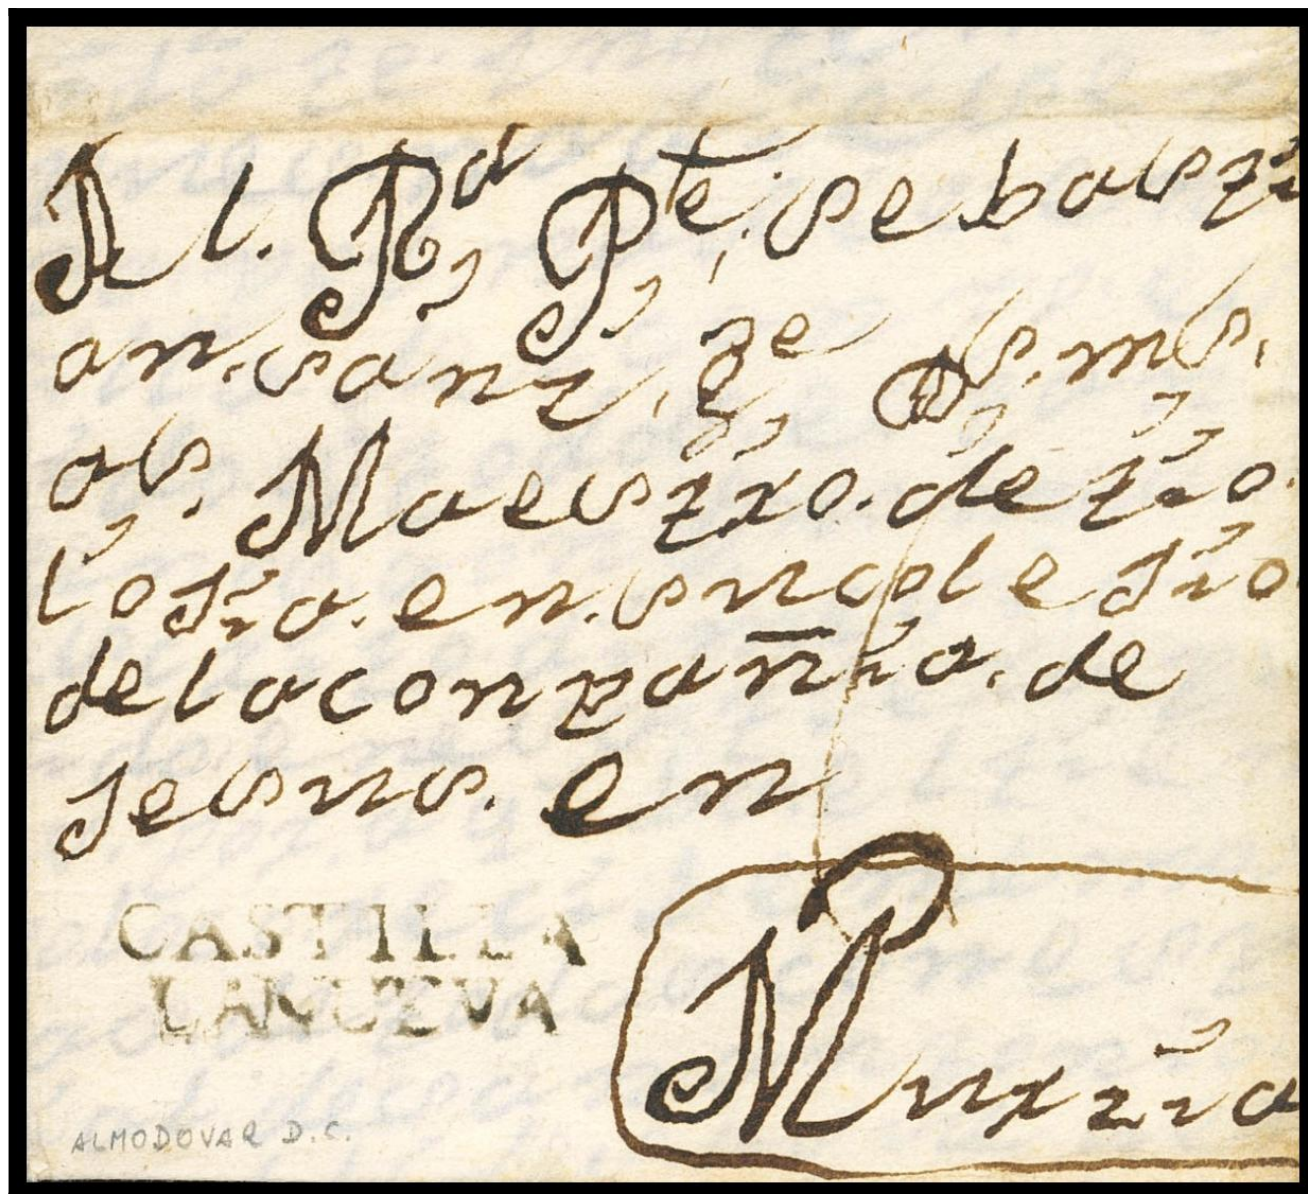 Al. Rd Pe. sebasti
an. sanz, ge Ds. ms.
as. Maestro. de tio
lojia. en. su colejio
de la conpañia. de
Jesus. en
Murzia
CASTILLA
LANUEVA
ALMODOVAR D.C.